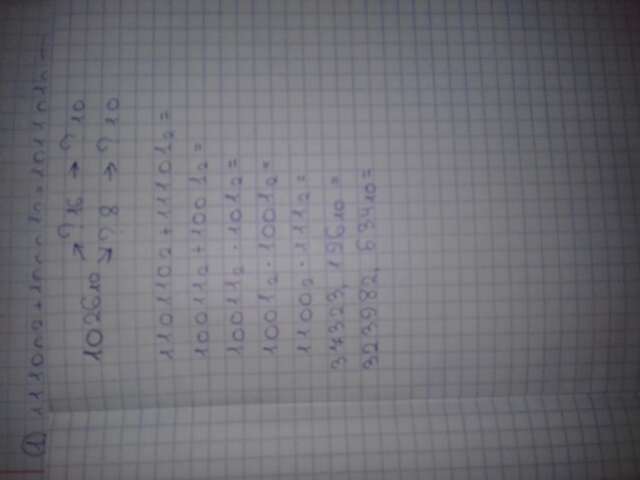 1026₁₀ → ?₁₆ → ?₁₀
→ ?₈ → ?₁₀
110110₂ + 11101₂ =
10011₂ + 1001₂ =
10011₂ · 101₂ =
1001₂ · 1001₂ =
1100₂ · 111₂ =
37323, 196₁₀ =
323982, 634₁₀ =